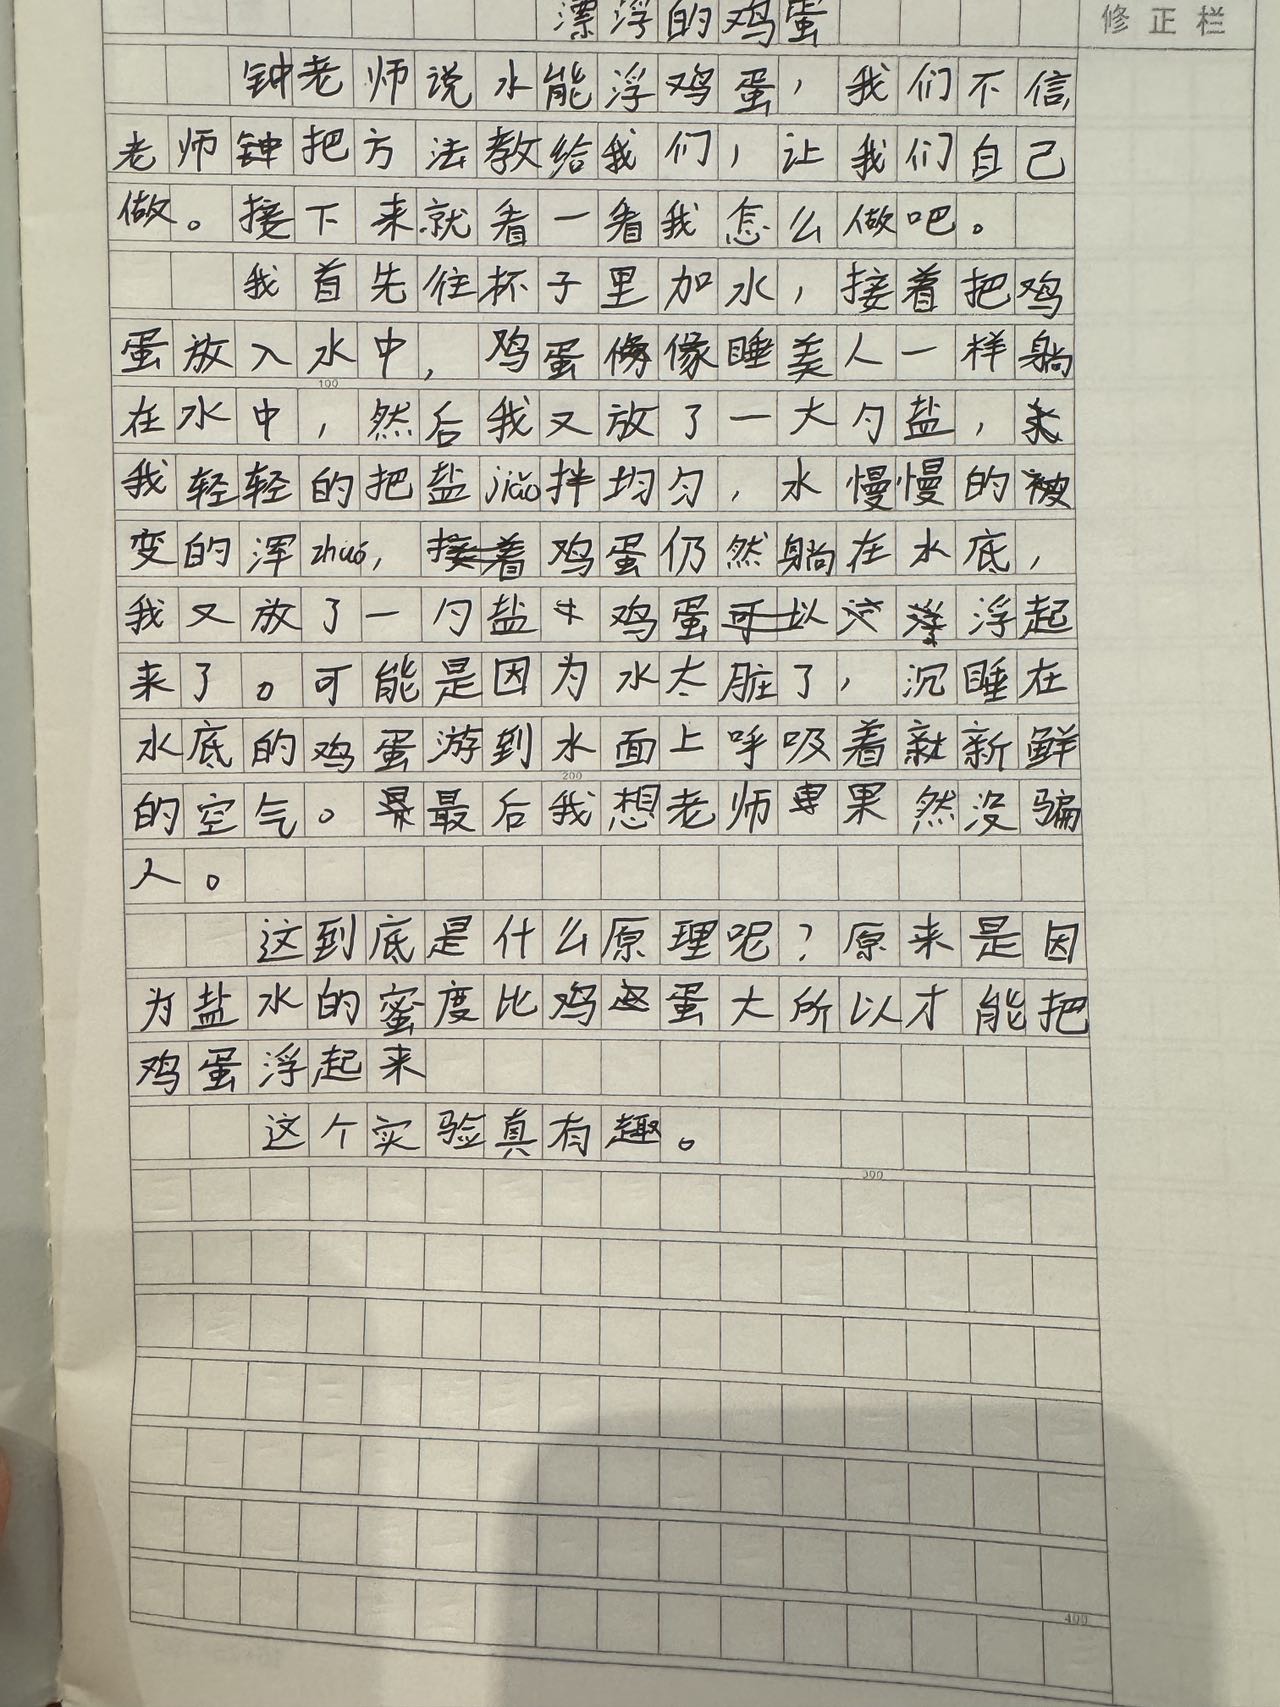 漂浮的鸡蛋
修正栏
钟老师说水能浮鸡蛋，我们不信，
老师钟把方法教给我们，让我们自己
做。接下来就看一看我怎么做吧。
我首先往杯子里加水，接着把鸡
蛋放入水中，鸡蛋像睡美人一样躺
100
在水中，然后我又放了一大勺盐，
我轻轻的把盐jiǎo拌均匀，水慢慢的
变的浑zhuó，鸡蛋仍然躺在水底，
我又放了一勺盐鸡蛋浮起
来了。可能是因为水太脏了，沉睡在
水底的鸡蛋游到水面上呼吸着新鲜
200
的空气。最后我想老师果然没骗
人。
这到底是什么原理呢？原来是因
为盐水的蜜度比鸡蛋大所以才能把
鸡蛋浮起来
这个实验真有趣。
300
400